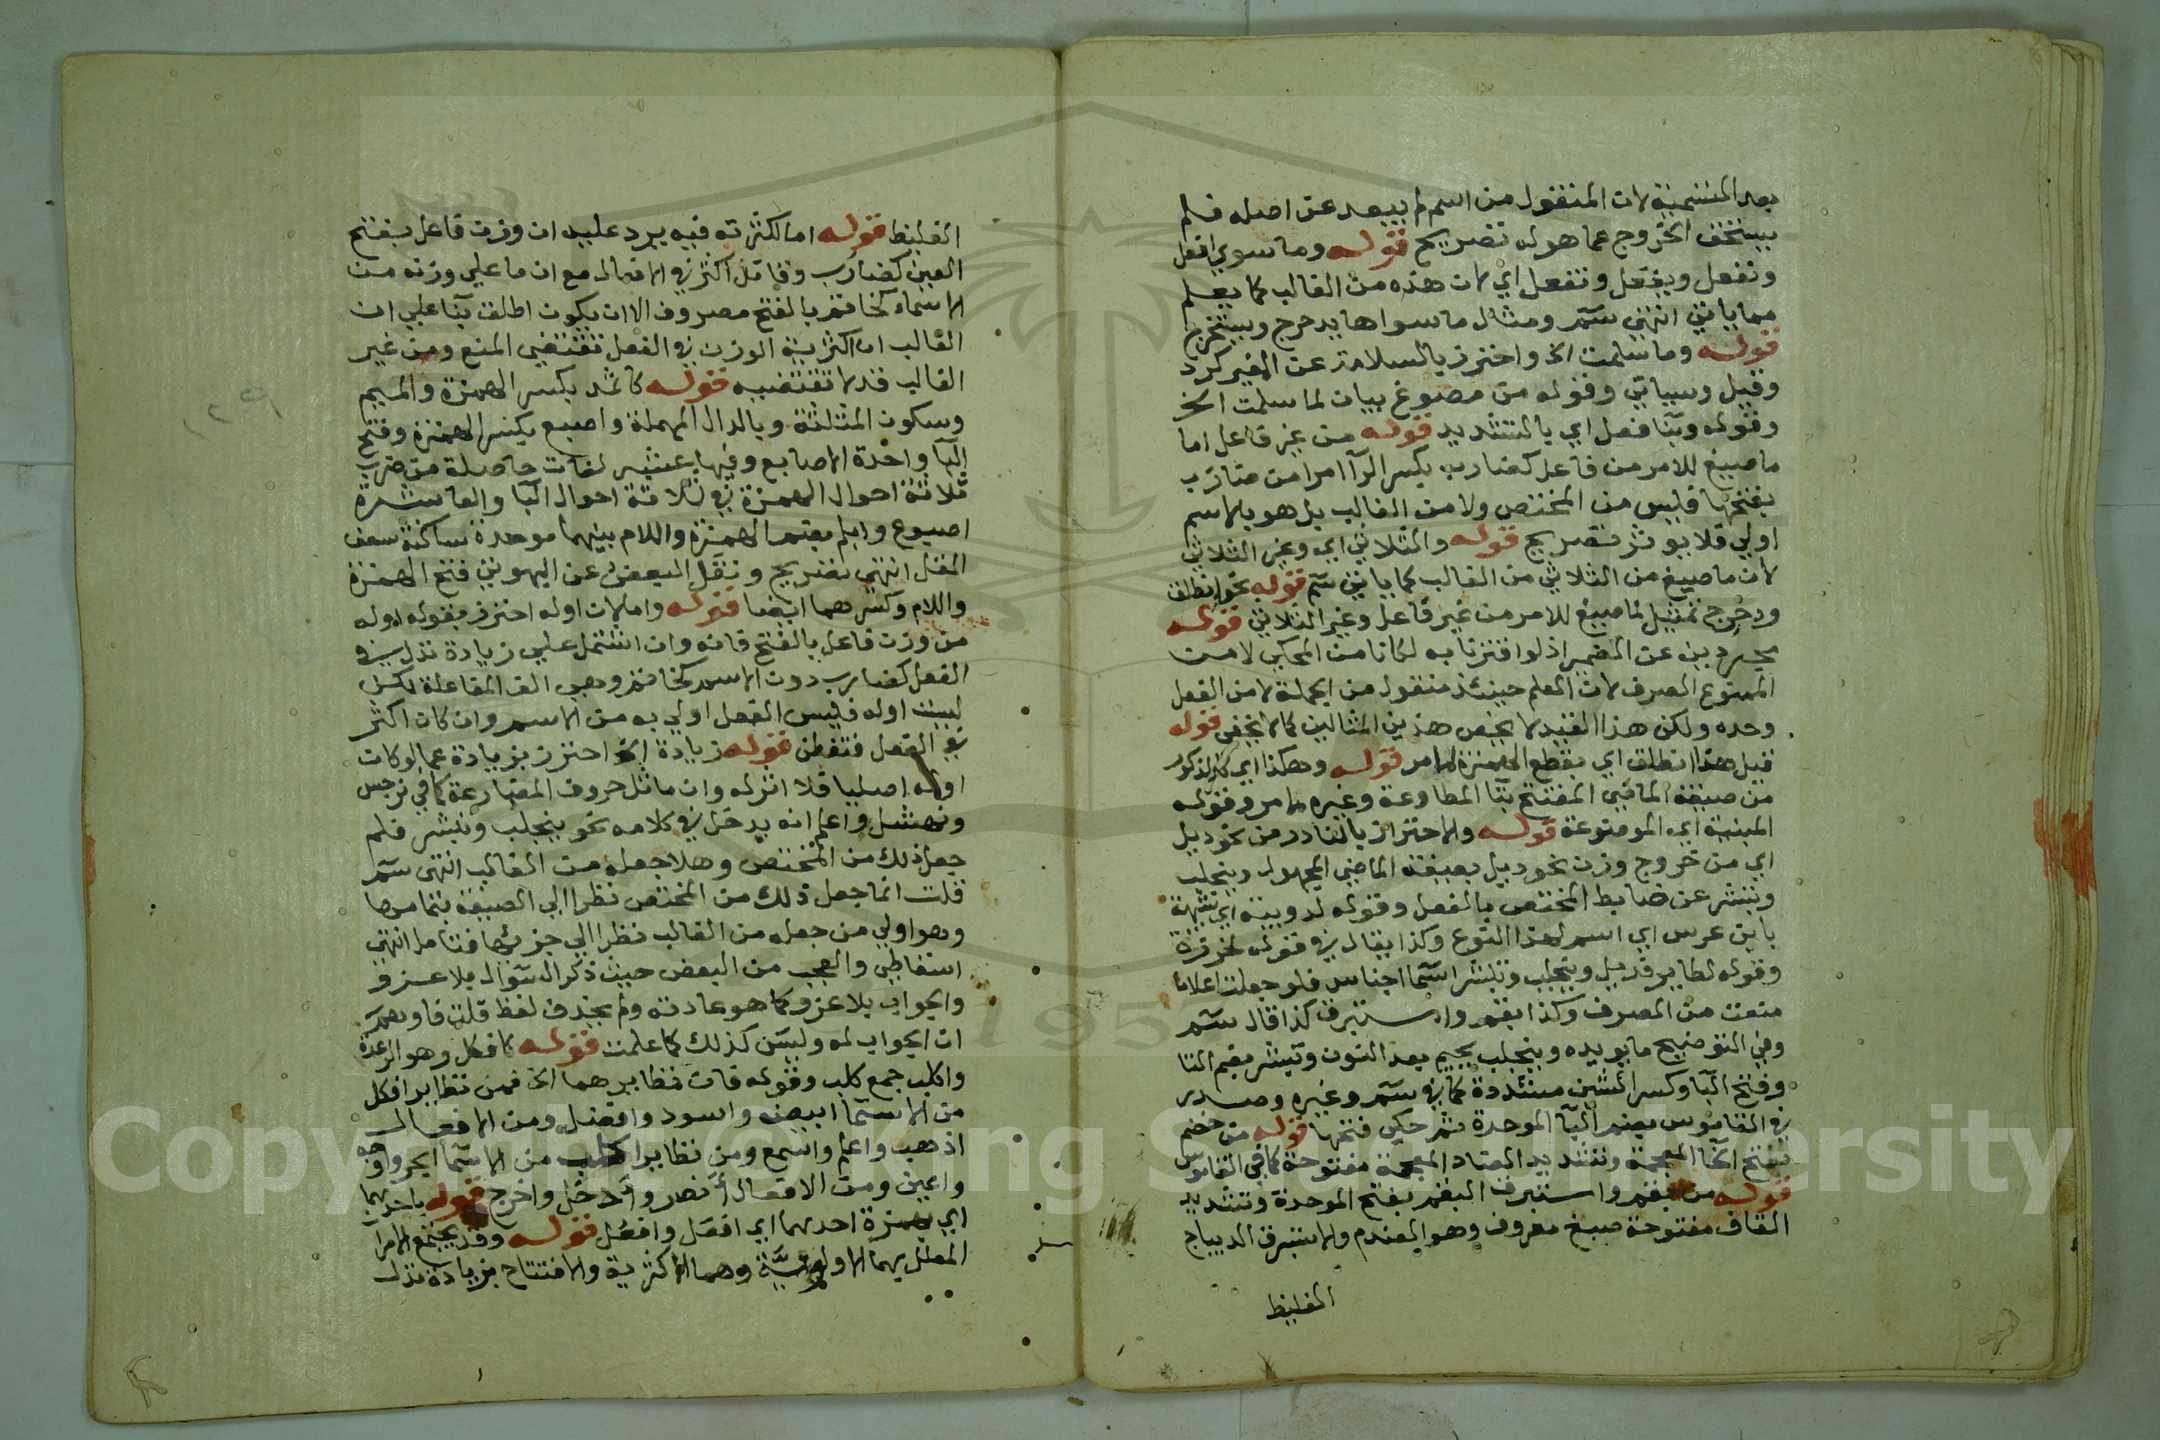 بعد التسمية لان المنقول من اسم لم يبعد عن اصله فلم
يستخف الخروج عما هو له تصريح قوله وما سوي افعل
ونفعل ويفعل وتفعل اي لان هذه من الغالب كما يعلم
مما ياتي انتهي سم ومثال ما سواها يدحرج ويستخرج
قوله وما سلمت الخ واحترز بالسلامة عن المغير كرد
وقيل وسياتي وقوله من مصوغ بيان لما سلمت الخ
وقوله وبنا فعل اي بالتشديد قوله من غير فاعل اما
ما صيغ للامر من فاعل كضارب بكسر الرآ امرا من ضارب
بفتحها فليس من المختص ولا من الغالب بل هو بالاسم
اولي فلا يوثر تصريح قوله والثلاثي اي وغير الثلاثي
لان ما صيغ من الثلاثي من الغالب كما ياتي سم قوله نحو انطلق
ودحرج تمثيل لما صيغ للامر من غير فاعل وغير الثلاثي قوله
مجردين عن الضمير اذ لو اقترنا به لكانا من المحكي لا من
الممنوع الصرف لان العلم حينئذ منقول من الجملة لا من الفعل
وحده ولكن هذا القيد لا يخص هذين المثالين كما لا يخفي قوله
قيل هذا انطلق اي بقطع الهمزة لما مر قوله وهكذا اي كالمذكور
من صيغة الماضي المفتتح بتا المطاوعة وغيره ما مر وقوله
المبنية اي الموضوعة قوله والاحتراز بالنادر من نحو دئل
اي من خروج وزن نحو دئل بصيغة الماضي المجهول وينجلب
وتبشر عن ضابط المختص بالفعل وقوله لدويبة اي شبيهة
بابن عرس اي اسم لهذا النوع وكذا يقال في قوله لخرزة
وقوله لطاير فدئل وينجلب وتبشر اسما اجناس فلو جعلت اعلاما
منعت من الصرف وكذا بقم واستبرق كذا قال سم
وفي التوضيح ما يويده وينجلب بجيم بعد النون وتبشر بضم التا
وفتح البا وكسر الشين مشددة كما في سم وغيره وصدر
في القاموس بضم البآ الموحدة ثم حكي فتحها قوله من خضم
بفتح الخآ المعجمة وتشديد الضاد المعجمة مفتوحة كما في القاموس
قوله من بقم واستبرق البقم بفتح الموحدة وتشديد
القاف مفتوحة صبغ معروف وهو العندم والاستبرق الديباج
الغليظ
الغليظ قوله اما لكثرته فيه يرد عليه ان وزن فاعل بفتح
العين كضارب وقاتل اكثر في الافعال مع ان ما علي وزنه من
الاسماء كخاتم بالفتح مصروف الا ان يكون اطلق بنآ علي ان
الغالب ان اكثرية الوزن في الفعل تقتضي المنع ومن غير
الغالب قد لا تقتضيه قوله كاثمد بكسر الهمزة والميم
وسكون المثلثة وبالدال المهملة واصبع بكسر الهمزة وفتح
البآ واحدة الاصابع وفيها عشر لغات حاصلة من ضرب
ثلاثة احوال الهمزة في ثلاثة احوال البآ والعاشرة
اصبوع وابلم بضم الهمزة واللام بينهما موحدة ساكنة سعف
المقل انتهي تصريح ونقل البعض عن البهوتي فتح الهمزة
واللام وكسرهما ايضا قوله واما لان اوله احترز بقوله اوله
من وزن فاعل بالفتح فانه وان اشتمل علي زيادة تدل في
الفعل كضارب دون الاسم كخاتم وهي الف المفاعلة لكن
ليست اوله فليس الفعل اولي به من الاسم وان كان اكثر
في الفعل فتفطن قوله زيادة الخ احترز بزيادة عما لو كان
اوله اصليا فلا اثر له وان ماثل حروف المضارعة كما في نرجس
ونهشل واعلم انه يدخل في كلامه نحو ينجلب وتبشر فلم
جعل ذلك من المختص وهلا جعله من الغالب انتهي سم
قلت انما جعل ذلك من المختص نظرا الي الصيغة بتمامها
وهو اولي من جعله من الغالب نظرا الي جزئها فتامل انتهي
اسقاطي والعجب من البعض حيث ذكر السوال بلا عزو
والجواب بلا عزو كما هو عادته ولم يحذف لفظ قلت فاوهم
ان الجواب له وليس كذلك كما علمت قوله كافكل وهو الرعدة
واكلب جمع كلب وقوله فان نظايرهما الخ فمن نظاير افكل
من الاسمآ ابيض واسود وافضل ومن الافعال
اذهب واعلم واسمع ومن نظاير اكلب من الاسمآ ابحر واوجه
واعين ومن الافعال أنصر وأدخل واخرج قوله باحدهما
اي بهمزة احدهما اي افعل وافعُل قوله وقد يجتمع الامران
المعلل بهما الاولوية وهما الاكثرية والافتتاح بزيادة تدل
Copyright © King Saud University
195